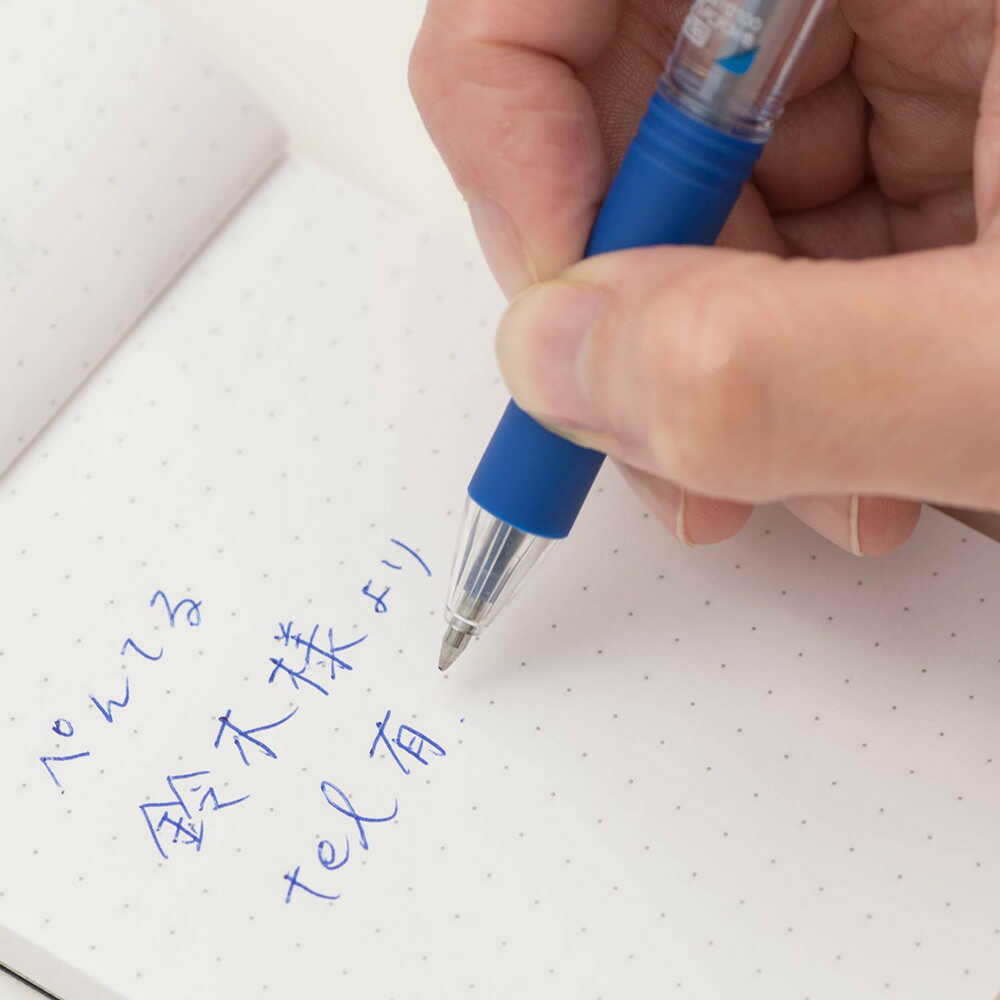 ぺんてる
鈴木様より
tel有.